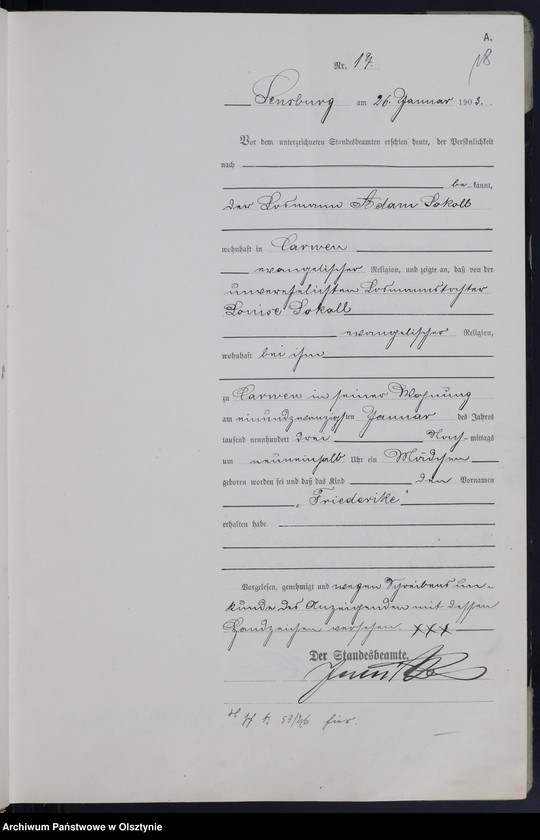 A.
Nr. 17.
Sensburg am 26. Januar 1903.
Vor dem unterzeichneten Standesbeamten erschien heute, der Persönlichkeit
nach
be kannt,
der Losmann Adam Sokoll
wohnhaft in Carwen
evangelischer Religion, und zeigte an, daß von der
unverehelichten Losmannstochter
Louise Sokoll
evangelischer Religion,
wohnhaft bei ihm
zu Carwen in seiner Wohnung
am einundzwanzigsten Januar des Jahres
tausend neunhundert drei Nach mittags
um neuneinhalb Uhr ein Mädchen
geboren worden sei und daß das Kind den Vornamen
„Friederike“
erhalten habe.
Vorgelesen, genehmigt und wegen Schreibens un-
kunde des Anzeigenden mit dessen
Handzeichen versehen. XXX
Der Standesbeamte.
Archiwum Państwowe w Olsztynie